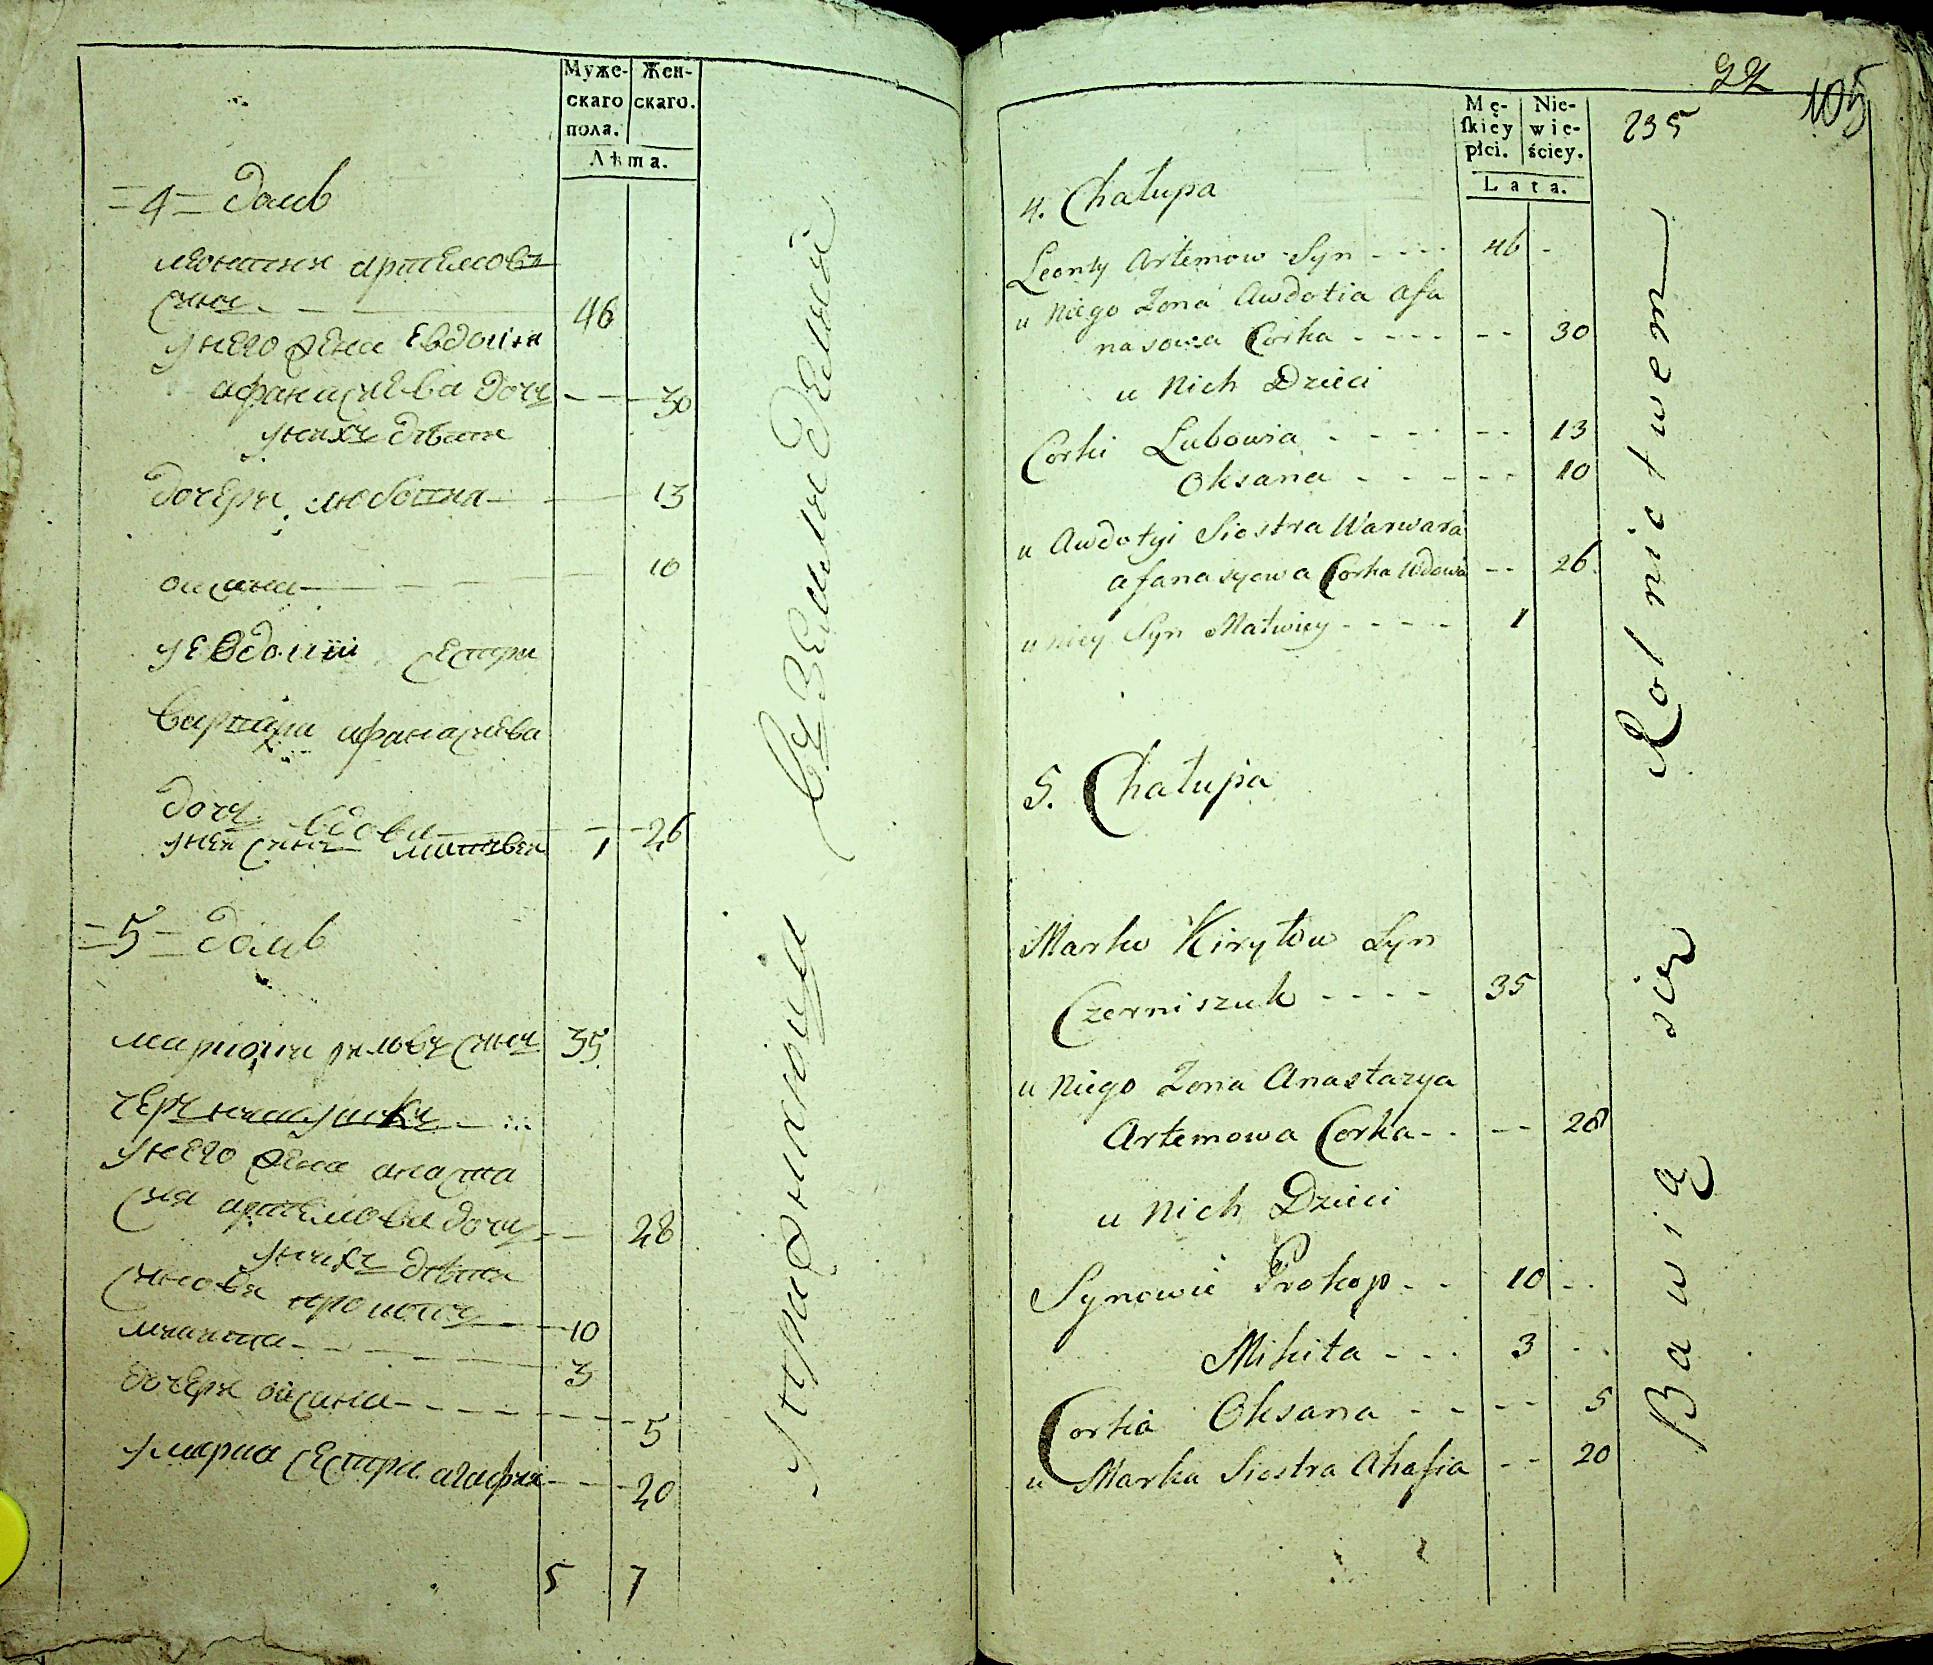 Муже-
скаго
пола.
Жен-
скаго.
Лѣта.
=4= домъ
леонтии артемовъ
сынъ 46
у него жена Евдокия
афанасиева дочь 30
у нихъ дѣти
дочери любовиа 13
оксана 10
у Евдокiи сестра
варвара афанасиева
дочь вдова 26
у нея сынъ матвеи 1
=5= домъ
марко кириловъ сынъ 35
у него жена анаста
сия артемова дочь 28
у нихъ дѣти
сынове прокопъ 10
микита 3
дочери оксана 5
у марка сестра агафия 20
5 7
упражнении въ земледелии
22
105
235
Mę-
ſkiéy
płci.
Nie-
wie-
ściey.
Lata.
4. Chałupa
Leonty Artemow Syn - - - - 46 -
u Niego Zona Awdotia Afa
nasowa Corka - - - - - - 30
u Nich Dzieci
Corki Lubowia - - - - - - 13
Oksana - - - - - - 10
u Awdotyi Siostra Warwara
afanasyowa Corka Wdowa - - 26
u niey Syn Matwiey - - - - 1
5. Chałupa
Marko Kiryłow Syn
Czerniszuk - - - - 35
u Niego Zona Anastazya
Artemowa Corka - - - - 28
u Nich Dzieci
Synowie Prokop - - 10 - -
Mikita - - - 3 - -
Corka Oksana - - - - 5
u Marka Siostra Ahafia - - 20
Bawią się Rolnictwem